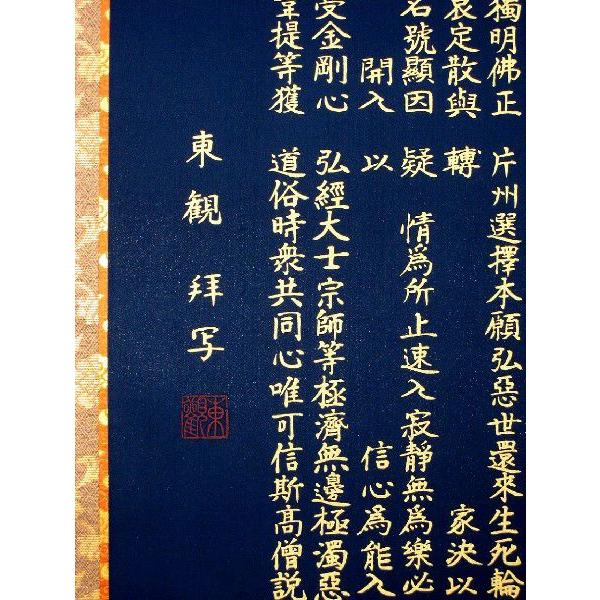 獨明佛正 片州選擇本願弘惡世還來生死輪
哀定散與 轉 家決以
名號顯因 疑 情爲所止速入寂靜無爲樂必
開入 以 信心爲能入
受金剛心 弘經大士宗師等極濟無邊極濁惡
韋提等獲 道俗時衆共同心唯可信斯高僧説
東観拜写
東觀